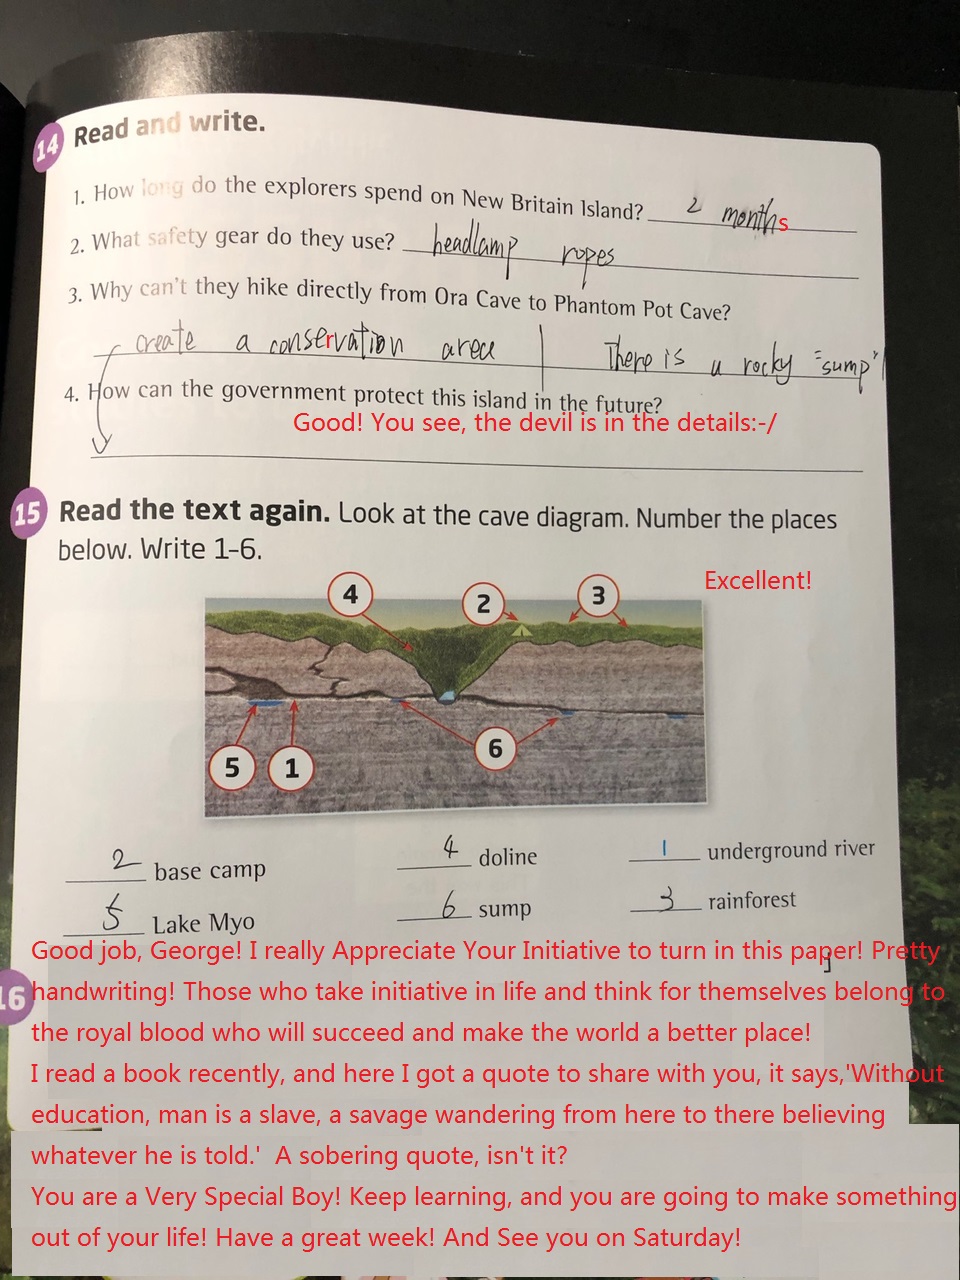 14 Read and write.
1. How long do the explorers spend on New Britain Island? 2 months
2. What safety gear do they use? headlamp ropes
3. Why can't they hike directly from Ora Cave to Phantom Pot Cave?
create a conservation area There is a rocky "sump"
4. How can the government protect this island in the future?
Good! You see, the devil is in the details:-/
15 Read the text again. Look at the cave diagram. Number the places
below. Write 1-6.
Excellent!
4 2 3
6
5 1
2 base camp 4 doline 1 underground river
5 Lake Myo 6 sump 3 rainforest
Good job, George! I really Appreciate Your Initiative to turn in this paper! Pretty
16 handwriting! Those who take initiative in life and think for themselves belong to
the royal blood who will succeed and make the world a better place!
I read a book recently, and here I got a quote to share with you, it says,'Without
education, man is a slave, a savage wandering from here to there believing
whatever he is told.' A sobering quote, isn't it?
You are a Very Special Boy! Keep learning, and you are going to make something
out of your life! Have a great week! And See you on Saturday!